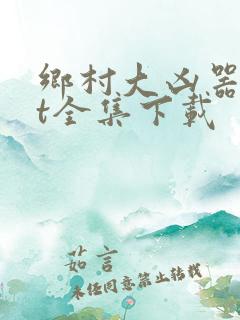 鄉村大凶器
t全集下載
茹言
未经同意禁止转载